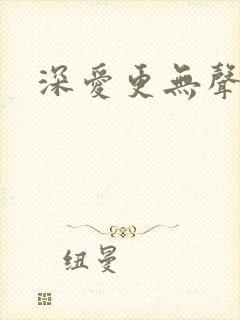 深愛更無聲
纽曼